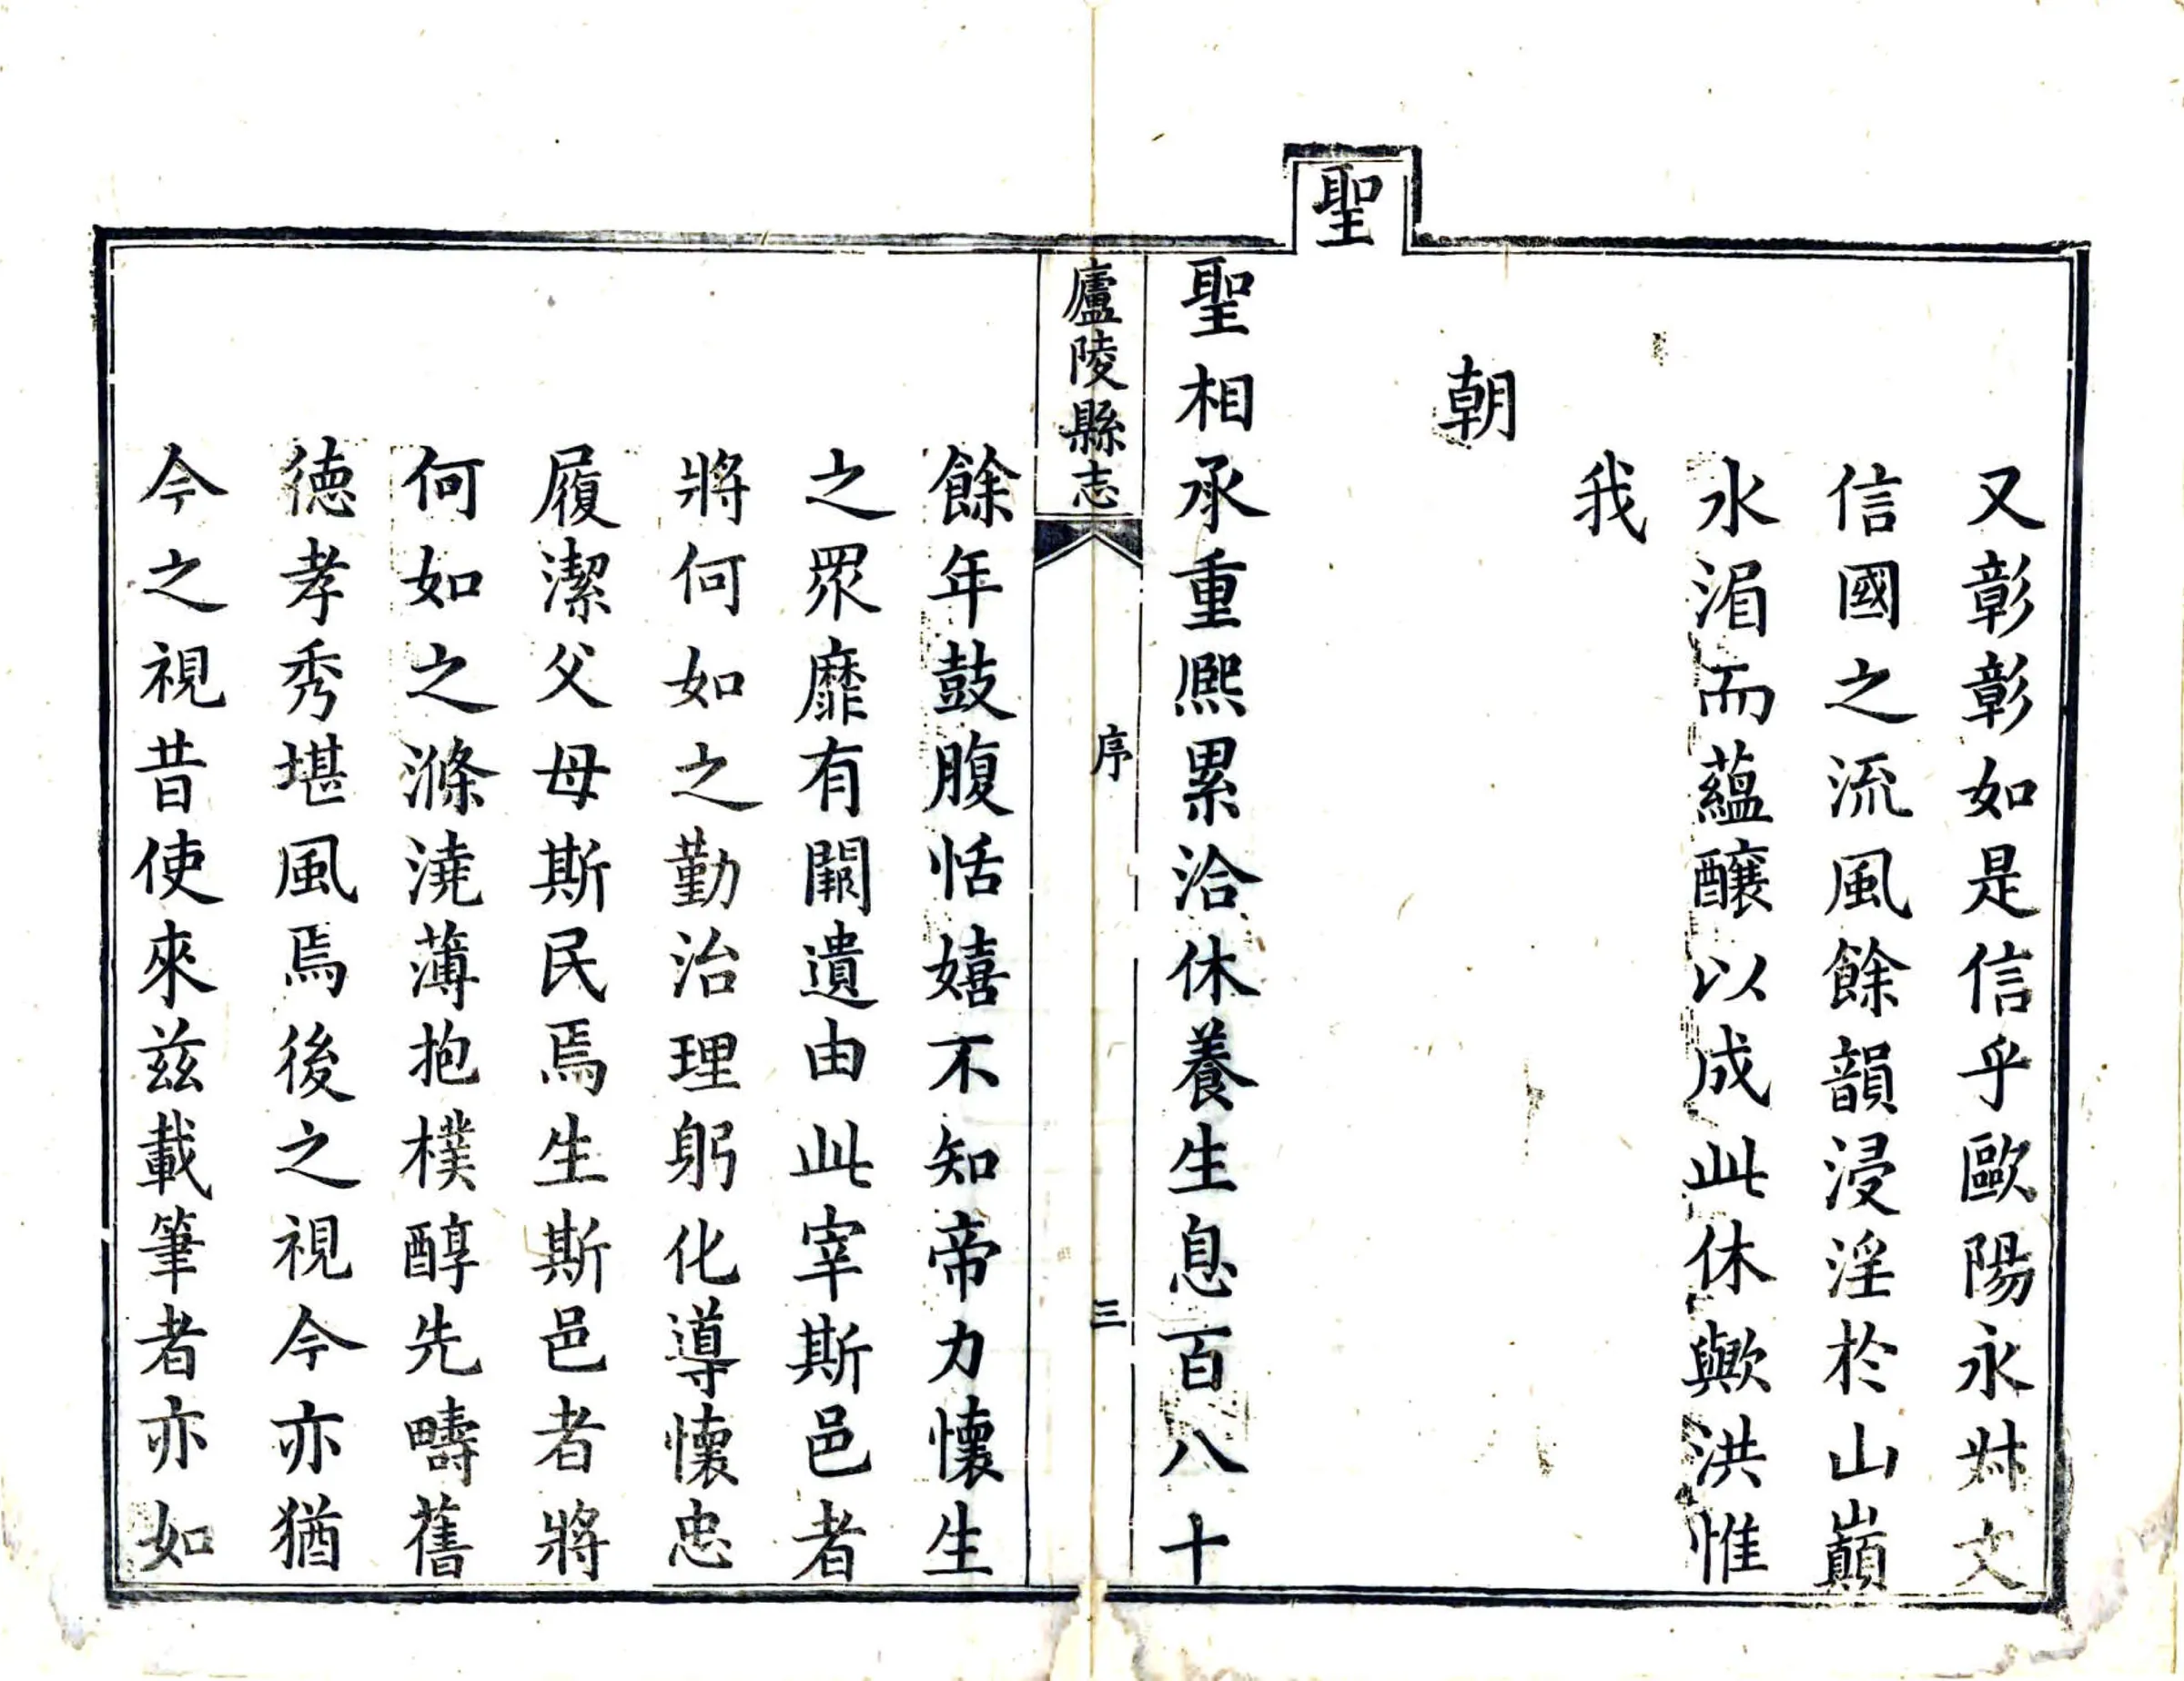 又彰彰如是信乎歐陽永叔文
信國之流風餘韻浸淫於山巔
水湄而蘊釀以成此休歟洪惟
我
朝
聖
聖相承重熙累洽休養生息百八十
廬陵縣志
序
三
餘年鼓腹恬嬉不知帝力懷生
之眾靡有闕遺由此宰斯邑者
將何如之勤治理躬化導懷忠
履潔父母斯民焉生斯邑者將
何如之滌澆薄抱樸醇先疇舊
德孝秀堪風焉後之視今亦猶
今之視昔使來茲載筆者亦如